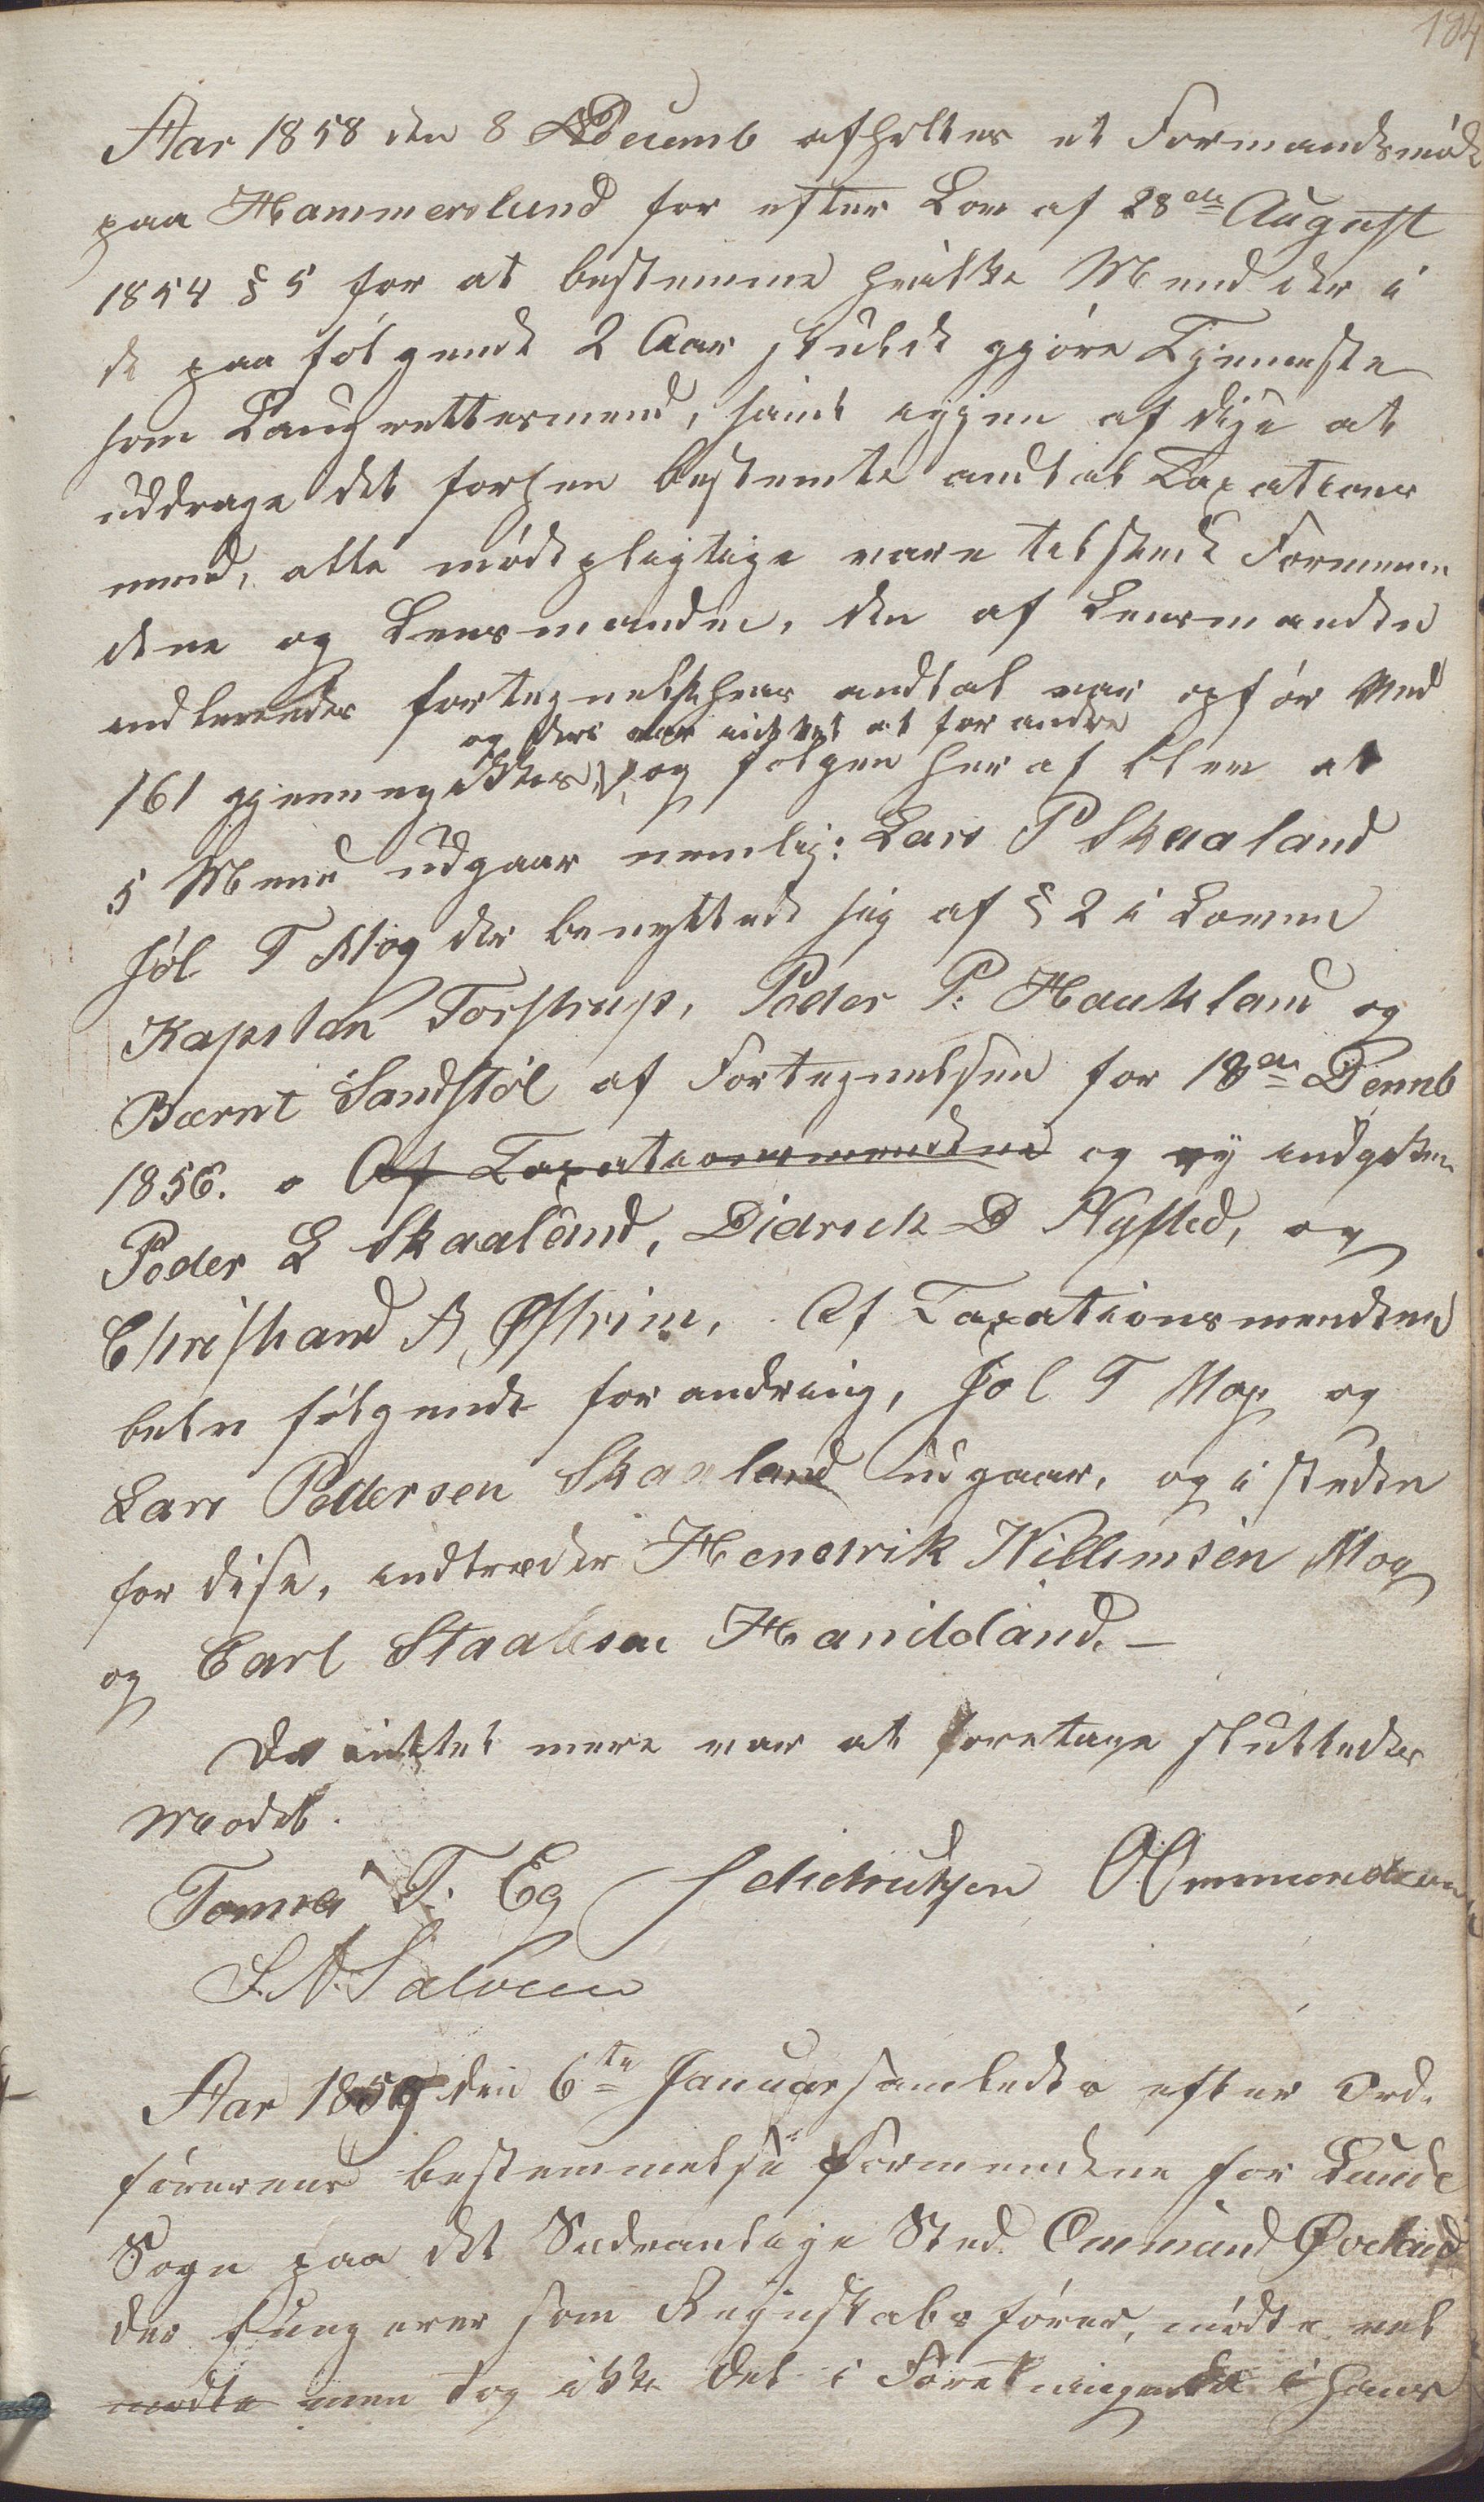 184
Aar 1858 den 8 Decemb afholtes et Formandsmøde
paa Hammerslund for efter Lov af 28de August
1854 § 5 for at bestemme hvilke Mend der i
de paa følgende 2 Aar skulde gjøre Tjeneste
som Laugrettesmend, samt igjen af disse at
uddrage det forhen bestemte andtal Taxations
mend, alle mødepligtige vare tilstede Formæn
dene og Lensmanden, den af Lensmanden
indleverede fortegnelse hvis andtal var opfør Med
og deri var intet at forandre
161 gjennemgikkes, og følgen heraf blev at
5 Mend udgaar nemlig: Lars P Skaaland
Jøl T Mog der benyttede sig af § 2 i Loven
Kapitan Torstrup, Peder P. Haukland og
Bærnt Sandstøl af Fortegnelsen for 18de Decmb
1856. Af Taxationsmendene og ny indgaten
Peder L Skaaland, Didrick D Nysted, og
Christian A Østrim, Af Taxationsmendene
belv følgende forandring, Jol T Mog og
Lars Pettersen Skaaland udgaar, og i steden
for disse, indtræder Hendrik Willumsen Mog
og Carl Staalesen Hanidland. —
Da intet mere var at foretage sluttedes
Mødet.
Tomas T. Eg Didricksen O Ommundsen
S. A. Salvesen
Aar 1859 den 6te Januar samledes efter Ord-
førerens bestemmelse Formendene for Lunde
Sogn paa det Sedvanlige Sted Ommund Øveland
der fungerer som Regnskabsfører, mødte vel
mødte men tog ikke Del i Foretningen da i hans